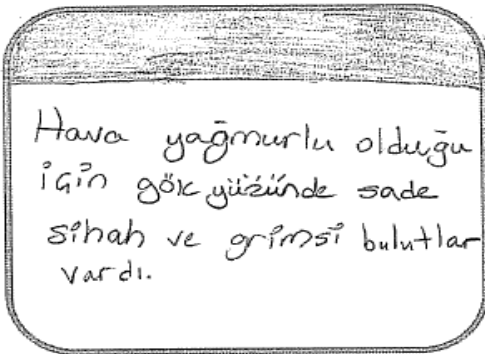 Hava yağmurlu olduğu
için gök yüzünde sade
sihah ve grimsi bulutlar
vardı.